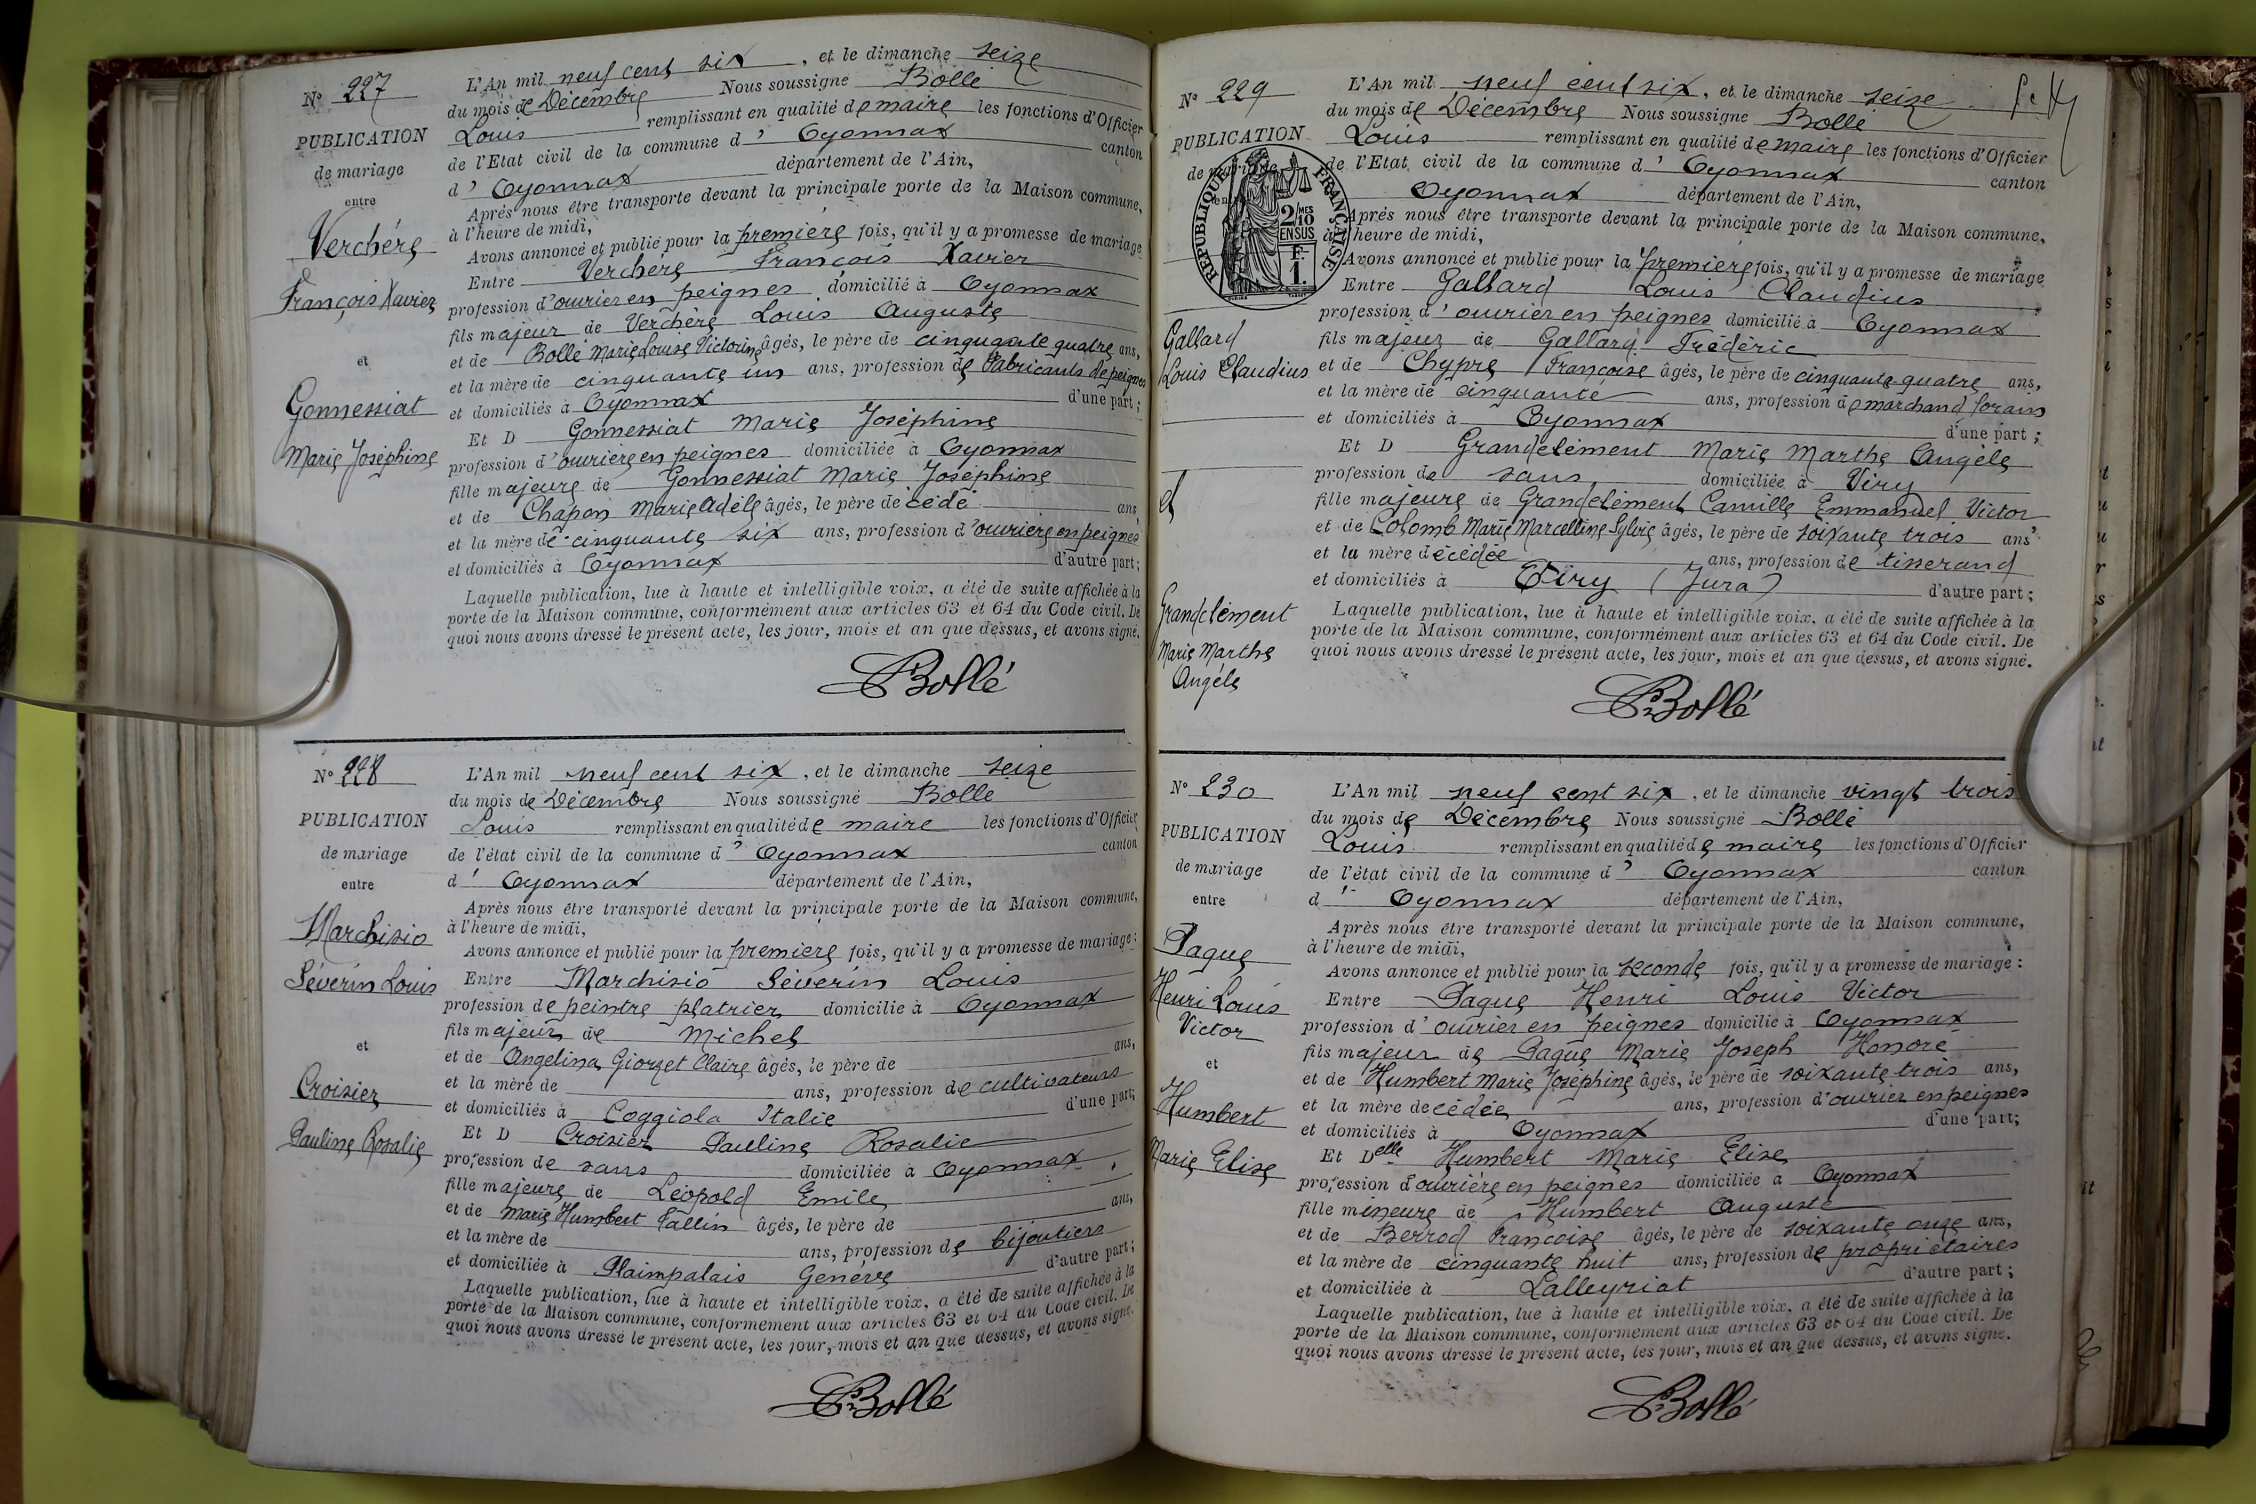 N° 227
PUBLICATION
de mariage
entre
Verchére
François Xavier
et
Gonnessiat
Marie Joséphine
L'An mil neuf cent six, et le dimanche seize
du mois de Décembre Nous soussigné Bollé
Louis remplissant en qualité de maire les fonctions d'Officier
de l'Etat civil de la commune d' Oyonnax canton
d' Oyonnax département de l'Ain,
Après nous être transporté devant la principale porte de la Maison commune,
à l'heure de midi,
Avons annoncé et publié pour la première fois, qu'il y a promesse de mariage
Entre Verchére François Xavier
profession d'ouvrier en peignes domicilié à Oyonnax
fils majeur de Verchère Louis Auguste
et de Bollé Marie Louise Victorine âgés, le père de cinquante quatre ans,
et la mère de cinquante un ans, profession de Fabricants de peignes
et domiciliés à Oyonnax d'une part;
Et D Gonnessiat Marie Joséphine
profession d'ouvrière en peignes domiciliée à Oyonnax
fille majeure de Gonnessiat Marie Joséphine
et de Chapon Marie Adèle âgés, le père décédé ans
et la mère de cinquante six ans, profession d'ouvrière en peignes
et domiciliés à Oyonnax d'autre part;
Laquelle publication, lue à haute et intelligible voix, a été de suite affichée à la
porte de la Maison commune, conformément aux articles 63 et 64 du Code civil. De
quoi nous avons dressé le présent acte, les jour, mois et an que dessus, et avons signé.
Bollé
N° 228
PUBLICATION
de mariage
entre
Marchisio
Séverin Louis
et
Croisier
Pauline Rosalie
L'An mil neuf cent six, et le dimanche seize
du mois de Décembre Nous soussigné Bollé
Louis remplissant en qualité de maire les fonctions d'Officier
de l'état civil de la commune d' Oyonnax canton
d' Oyonnax département de l'Ain,
Après nous être transporté devant la principale porte de la Maison commune,
à l'heure de midi,
Avons annoncé et publié pour la première fois, qu'il y a promesse de mariage:
Entre Marchisio Séverin Louis
profession de peintre platrier domicilié à Oyonnax
fils majeur de Michel
et de Angelina Giorzet Claire âgés, le père de ans,
et la mère de ans, profession de cultivateurs
et domiciliés à Coggiola Italie d'une part;
Et D Croisier Pauline Rosalie
profession de sans domiciliée à Oyonnax
fille majeure de Léopold Emile
et de Marie Humbert Fallin âgés, le père de ans,
et la mère de ans, profession de bijoutiers
et domiciliée à Plaimpalais Genève d'autre part;
Laquelle publication, lue à haute et intelligible voix, a été de suite affichée à la
porte de la Maison commune, conformément aux articles 63 et 64 du Code civil. De
quoi nous avons dressé le présent acte, les jour, mois et an que dessus, et avons signé.
Bollé
N° 229
PUBLICATION
de mariage
REPUBLIQUE FRANÇAISE
2/10 MES
EN SUS
F.
1.
Gallard
Louis Claudius
et
Grandclément
Marie Marthe
Angéle
L'An mil neuf cent six, et le dimanche seize
du mois de Décembre Nous soussigné Bollé
Louis remplissant en qualité de maire les fonctions d'Officier
de l'Etat civil de la commune d' Oyonnax canton
Oyonnax département de l'Ain,
Après nous être transporté devant la principale porte de la Maison commune,
à l'heure de midi,
Avons annoncé et publié pour la première fois, qu'il y a promesse de mariage
Entre Gallard Louis Claudius
profession d'ouvrier en peignes domicilié à Oyonnax
fils majeur de Gallard Frédéric
et de Chypre Françoise âgés, le père de cinquante quatre ans,
et la mère de cinquante ans, profession de marchand forain
et domiciliés à Oyonnax d'une part;
Et D Grandclément Marie Marthe Angèle
profession de sans domiciliée à Viry
fille majeure de Grandclément Camille Emmanuel Victor
et de Colomb Marie Marcelline Sylvie âgés, le père de soixante trois ans
et la mère décédée ans, profession de tisserand
et domiciliés à Viry (Jura) d'autre part;
Laquelle publication, lue à haute et intelligible voix, a été de suite affichée à la
porte de la Maison commune, conformément aux articles 63 et 64 du Code civil. De
quoi nous avons dressé le présent acte, les jour, mois et an que dessus, et avons signé.
Bollé
N° 230
PUBLICATION
de mariage
entre
Pague
Henri Louis
Victor
et
Humbert
Marie Elise
L'An mil neuf cent six, et le dimanche vingt trois
du mois de Décembre Nous soussigné Bollé
Louis remplissant en qualité de maire les fonctions d'Officier
de l'état civil de la commune d' Oyonnax canton
d' Oyonnax département de l'Ain,
Après nous être transporté devant la principale porte de la Maison commune,
à l'heure de midi,
Avons annoncé et publié pour la seconde fois, qu'il y a promesse de mariage:
Entre Pague Henri Louis Victor
profession d'ouvrier en peignes domicilié à Oyonnax
fils majeur de Pague Marie Joseph Honoré
et de Humbert Marie Joséphine âgés, le père de soixante trois ans,
et la mère décédée ans, profession d'ouvrier en peignes
et domiciliés à Oyonnax d'une part;
Et Delle Humbert Marie Elise
profession d'ouvrière en peignes domiciliée à Oyonnax
fille mineure de Humbert Auguste
et de Berrod Françoise âgés, le père de soixante onze ans,
et la mère de cinquante huit ans, profession de propriétaires
et domiciliée à Lalleyriat d'autre part;
Laquelle publication, lue à haute et intelligible voix, a été de suite affichée à la
porte de la Maison commune, conformément aux articles 63 et 64 du Code civil. De
quoi nous avons dressé le présent acte, les jour, mois et an que dessus, et avons signé.
Bollé